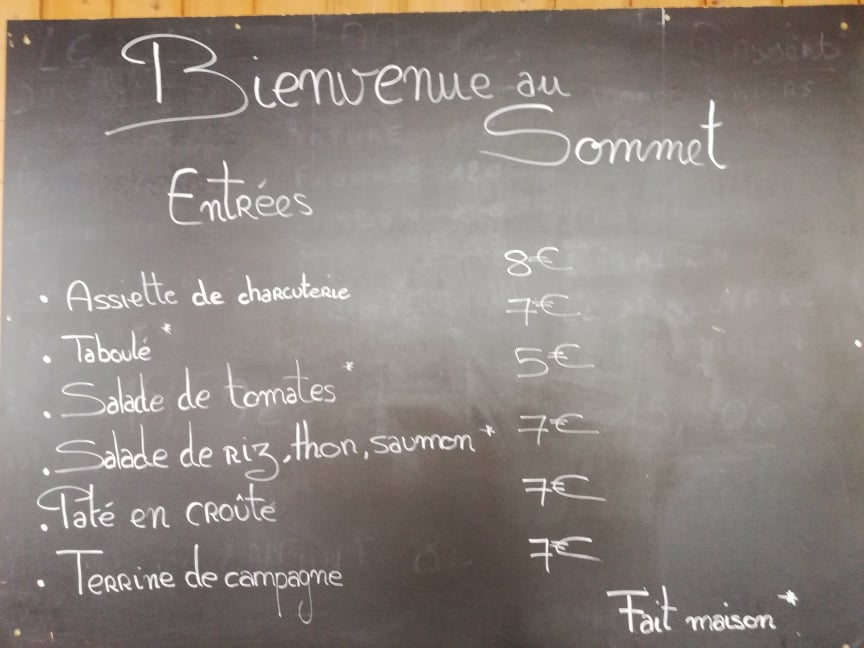 Bienvenue au
Sommet
Entrées
• Assiette de charcuterie 8€
• Taboulé* 7€
• Salade de tomates* 5€
• Salade de riz, thon, saumon* 7€
• Paté en croûte 7€
• Terrine de campagne 7€
Fait maison*